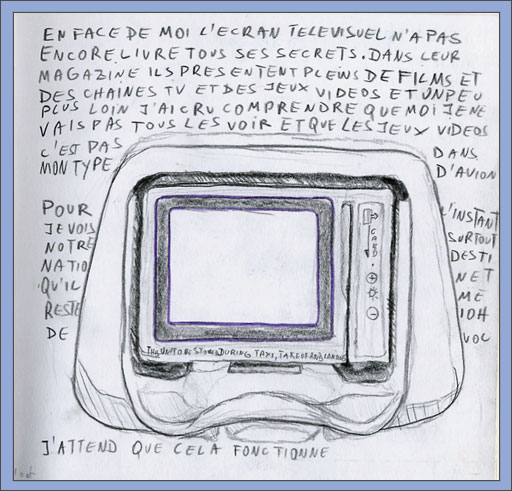 EN FACE DE MOI L'ECRAN TELEVISUEL N'A PAS
ENCORE LIVRE TOUS SES SECRETS. DANS LEUR
MAGAZINE ILS PRESENTENT PLEINS DE FILMS ET
DES CHAINES TV ET DES JEUX VIDEOS ET UN PEU
PLUS LOIN J'AI CRU COMPRENDRE QUE MOI JE NE
VAIS PAS TOUS LES VOIR ET QUE LES JEUX VIDEOS
C'EST PAS DANS
MON TYPE D'AVION
POUR L'INSTANT
JE VOIS SURTOUT
NOTRE DESTI
NATIO NET
QU'IL ME
RESTE 10H
DE VOL
CARD
THIS UNIT TO BE STORED DURING TAXI, TAKE OFF AND LANDING
J'ATTEND QUE CELA FONCTIONNE